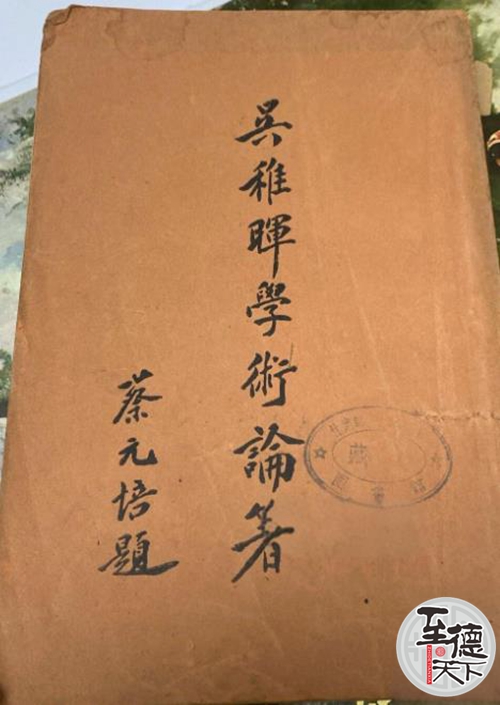 吳稚暉學術論箸
蔡元培題
至德天下